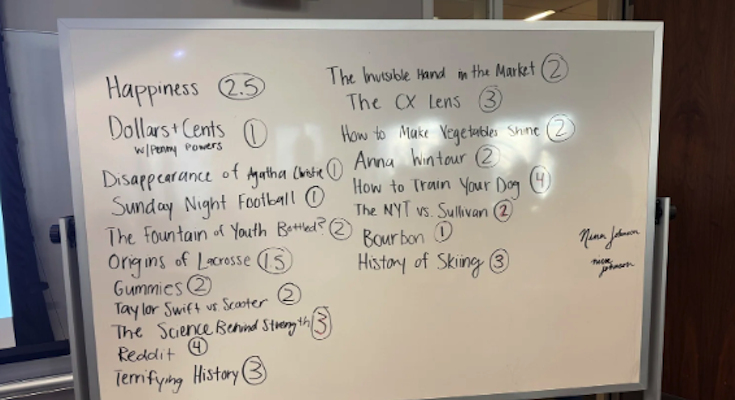 Happiness 2.5
Dollars + Cents 1
w/ Penny Powers
Disappearance of Agatha Christie 1
Sunday Night Football 1
The Fountain of Youth Bottled? 2
Origins of Lacrosse 15
Gummies 2
Taylor Swift vs. Scooter 2
The Science Behind Strength 3
Reddit 4
Terrifying History 3
The Invisible Hand in the Market 2
The CX Lens 3
How to Make Vegetables Shine 2
Anna Wintour 2
How to Train Your Dog 4
The NYT vs. Sullivan 2
Bourbon 1
History of Skiing 3
Nina Johnson
nina
johnson